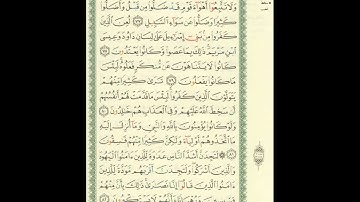 وَلَا تَتَّبِعُوٓا۟ أَهْوَآءَ قَوْمٍ قَدْ ضَلُّوا۟ مِن قَبْلُ وَأَضَلُّوا۟
كَثِيرًا وَضَلُّوا۟ عَن سَوَآءِ ٱلسَّبِيلِ ٧٧ لُعِنَ ٱلَّذِينَ
كَفَرُوا۟ مِنۢ بَنِىٓ إِسْرَٰٓءِيلَ عَلَىٰ لِسَانِ دَاوُۥدَ وَعِيسَى
ٱبْنِ مَرْيَمَ ۚ ذَٰلِكَ بِمَا عَصَوا۟ وَّكَانُوا۟ يَعْتَدُونَ ٧٨
كَانُوا۟ لَا يَتَنَاهَوْنَ عَن مُّنكَرٍ فَعَلُوهُ ۚ لَبِئْسَ
مَا كَانُوا۟ يَفْعَلُونَ ٧٩ تَرَىٰ كَثِيرًا مِّنْهُمْ
يَتَوَلَّوْنَ ٱلَّذِينَ كَفَرُوا۟ ۚ لَبِئْسَ مَا قَدَّمَتْ لَهُمْ أَنفُسُهُمْ
أَن سَخِطَ ٱللَّهُ عَلَيْهِمْ وَفِى ٱلْعَذَابِ هُمْ خَٰلِدُونَ ٨٠
وَلَوْ كَانُوا۟ يُؤْمِنُونَ بِٱللَّهِ وَٱلنَّبِىِّ وَمَآ أُنزِلَ إِلَيْهِ
مَا ٱتَّخَذُوهُمْ أَوْلِيَآءَ وَلَٰكِنَّ كَثِيرًا مِّنْهُمْ فَٰسِقُونَ
٨١ لَتَجِدَنَّ أَشَدَّ ٱلنَّاسِ عَدَٰوَةً لِّلَّذِينَ ءَامَنُوا۟ ٱلْيَهُودَ
وَٱلَّذِينَ أَشْرَكُوا۟ ۖ وَلَتَجِدَنَّ أَقْرَبَهُم مَّوَدَّةً لِّلَّذِينَ
ءَامَنُوا۟ ٱلَّذِينَ قَالُوٓا۟ إِنَّا نَصَٰرَىٰ ۚ ذَٰلِكَ بِأَنَّ مِنْهُمْ